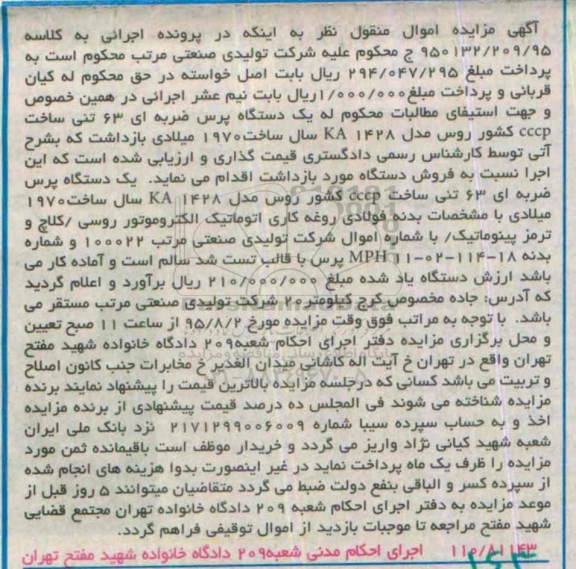 آگهی مزایده اموال منقول نظر به اینکه در پرونده اجرائی به کلاسه
۹۵۰۱۳۲/۲۰۹/۹۵ ج محکوم علیه شرکت تولیدی صنعتی مرتب محکوم است به
پرداخت مبلغ ۲۹۴/۰۴۷/۲۹۵ ریال بابت اصل خواسته در حق محکوم له کیان
قربانی و پرداخت مبلغ۱/۰۰۰/۰۰۰ریال بابت نیم عشر اجرائی در همین خصوص
و جهت استیفای مطالبات محکوم له یک دستگاه پرس ضربه ای ۶۳ تنی ساخت
cccp کشور روس مدل KA ۱۴۲۸ سال ساخت۱۹۷۰ میلادی بازداشت که بشرح
آتی توسط کارشناس رسمی دادگستری قیمت گذاری و ارزیابی شده است که این
اجرا نسبت به فروش دستگاه مورد بازداشت اقدام می نماید. یک دستگاه پرس
ضربه ای ۶۳ تنی ساخت cccp کشور روس مدل KA ۱۴۲۸ سال ساخت۱۹۷۰
میلادی با مشخصات بدنه فولادی روغه کاری اتوماتیک الکتروموتور روسی /کلاچ و
ترمز پینوماتیک/ با شماره اموال شرکت تولیدی صنعتی مرتب ۱۰۰۰۲۲ و شماره
بدنه MPH ۱۱-۰۲-۱۱۴-۱۸ پرس با قالب تست شد سالم است و آماده کار می
باشد ارزش دستگاه یاد شده مبلغ ۲۱۰/۰۰۰/۰۰۰ ریال برآورد و اعلام گردید
که آدرس: جاده مخصوص کرج کیلومتر۲۰ شرکت تولیدی صنعتی مرتب مستقر می
باشد. با توجه به مراتب فوق وقت مزایده مورخ ۹۵/۸/۲ از ساعت ۱۱ صبح تعیین
و محل برگزاری مزایده دفتر اجرای احکام شعبه۲۰۹ دادگاه خانواده شهید مفتح
تهران واقع در تهران خ آیت اله کاشانی میدان الغدیر خ مخابرات جنب کانون اصلاح
و تربیت می باشد کسانی که درجلسه مزایده بالاترین قیمت را پیشنهاد نمایند برنده
مزایده شناخته می شوند فی المجلس ده درصد قیمت پیشنهادی از برنده مزایده
اخذ و به حساب سپرده سیبا شماره ۲۱۷۱۲۹۹۰۰۶۰۰۹ نزد بانک ملی ایران
شعبه شهید کیانی نژاد واریز می گردد و خریدار موظف است باقیمانده ثمن مورد
مزایده را ظرف یک ماه پرداخت نماید در غیر اینصورت بدوا هزینه های انجام شده
از سپرده کسر و الباقی بنفع دولت ضبط می گردد متقاضیان میتوانند ۵ روز قبل از
موعد مزایده به دفتر اجرای احکام شعبه ۲۰۹ دادگاه خانواده تهران مجتمع قضایی
شهید مفتح مراجعه تا موجبات بازدید از اموال توقیفی فراهم گردد.
۱۱۰/۸۱۱۴۳ اجرای احکام مدنی شعبه۲۰۹ دادگاه خانواده شهید مفتح تهران